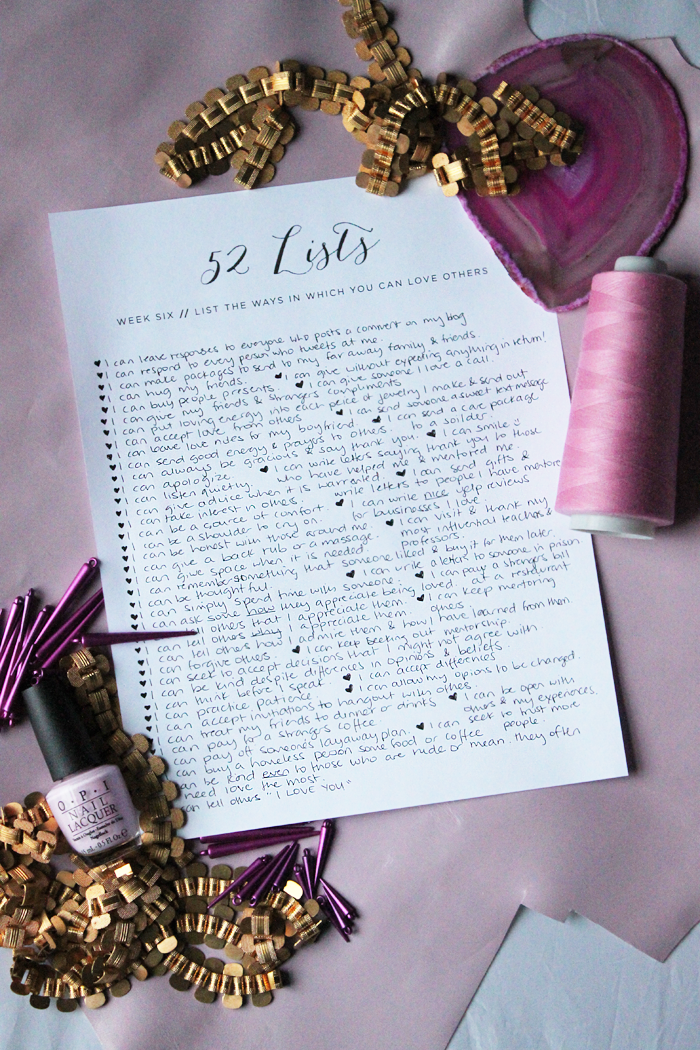 52 Lists
WEEK SIX // LIST THE WAYS IN WHICH YOU CAN LOVE OTHERS
♥ I can leave responses to everyone who posts a comment on my blog
♥ I can respond to every person who tweets at me.
♥ I can make packages to send to my far away family & friends.
♥ I can hug my friends. ♥ I can give without expecting anything in return!
♥ I can buy people presents. ♥ I can give someone I love a call.
♥ I can give my friends & strangers compliments
♥ I can put loving energy into each peice of jewelry I make & send out
♥ I can accept love from others ♥ I can send someone a sweet text message
♥ I can leave love notes for my boyfriend ♥ I can send a care package
♥ I can send good energy & prayers to others. to a soilder.
♥ I can always be gracious & say thank you. ♥ I can smile :)
♥ I can apologize ♥ I can write letters saying thank you to those
♥ I can listen quietly. who have helped me & mentored me.
♥ I can give advice when it is warranted ♥ I can send gifts &
♥ I can take interest in others. write letters to people I have mentored
♥ I can be a source of comfort ♥ I can write nice yelp reviews
♥ I can be a shoulder to cry on. for businesses I like.
♥ I can be honest with those around me. ♥ I can visit & thank my
♥ I can give a back rub or a massage. most influential teachers &
♥ I can give space when it is needed. professors.
♥ I can remember something that someone liked & buy it for them later.
♥ I can be thoughtful ♥ I can write a letter to someone in prison
♥ I can simply spend time with someone. ♥ I can pay a strangers bill
♥ I can ask some how they appreciate being loved. at a restaurant
♥ I can tell others that I appreciate them. ♥ I can keep mentoring
♥ I can tell others why I appreciate them others.
♥ I can tell others how I admire them & how I have learned from them.
♥ I can forgive others ♥ I can keep seeking out mentorship.
♥ I can seek to accept decisions that I might not agree with.
♥ I can be kind despite differences in opinions & beliefs.
♥ I can think before I speak. ♥ I can accept differences
♥ I can practice patience ♥ I can allow my opions to be changed.
♥ I can accept invitations to hangout with others.
♥ I can treat my friends to dinner or drinks ♥ I can be open with
I can pay for a strangers coffee. others & my experiences.
can pay off someone's layaway plan. ♥ I can seek to trust more
can buy a homeless person some food or coffee people.
can be kind even to those who are rude or mean. they often
need love the most.
can tell others "I LOVE YOU"
O·P·I
NAIL
LACQUER